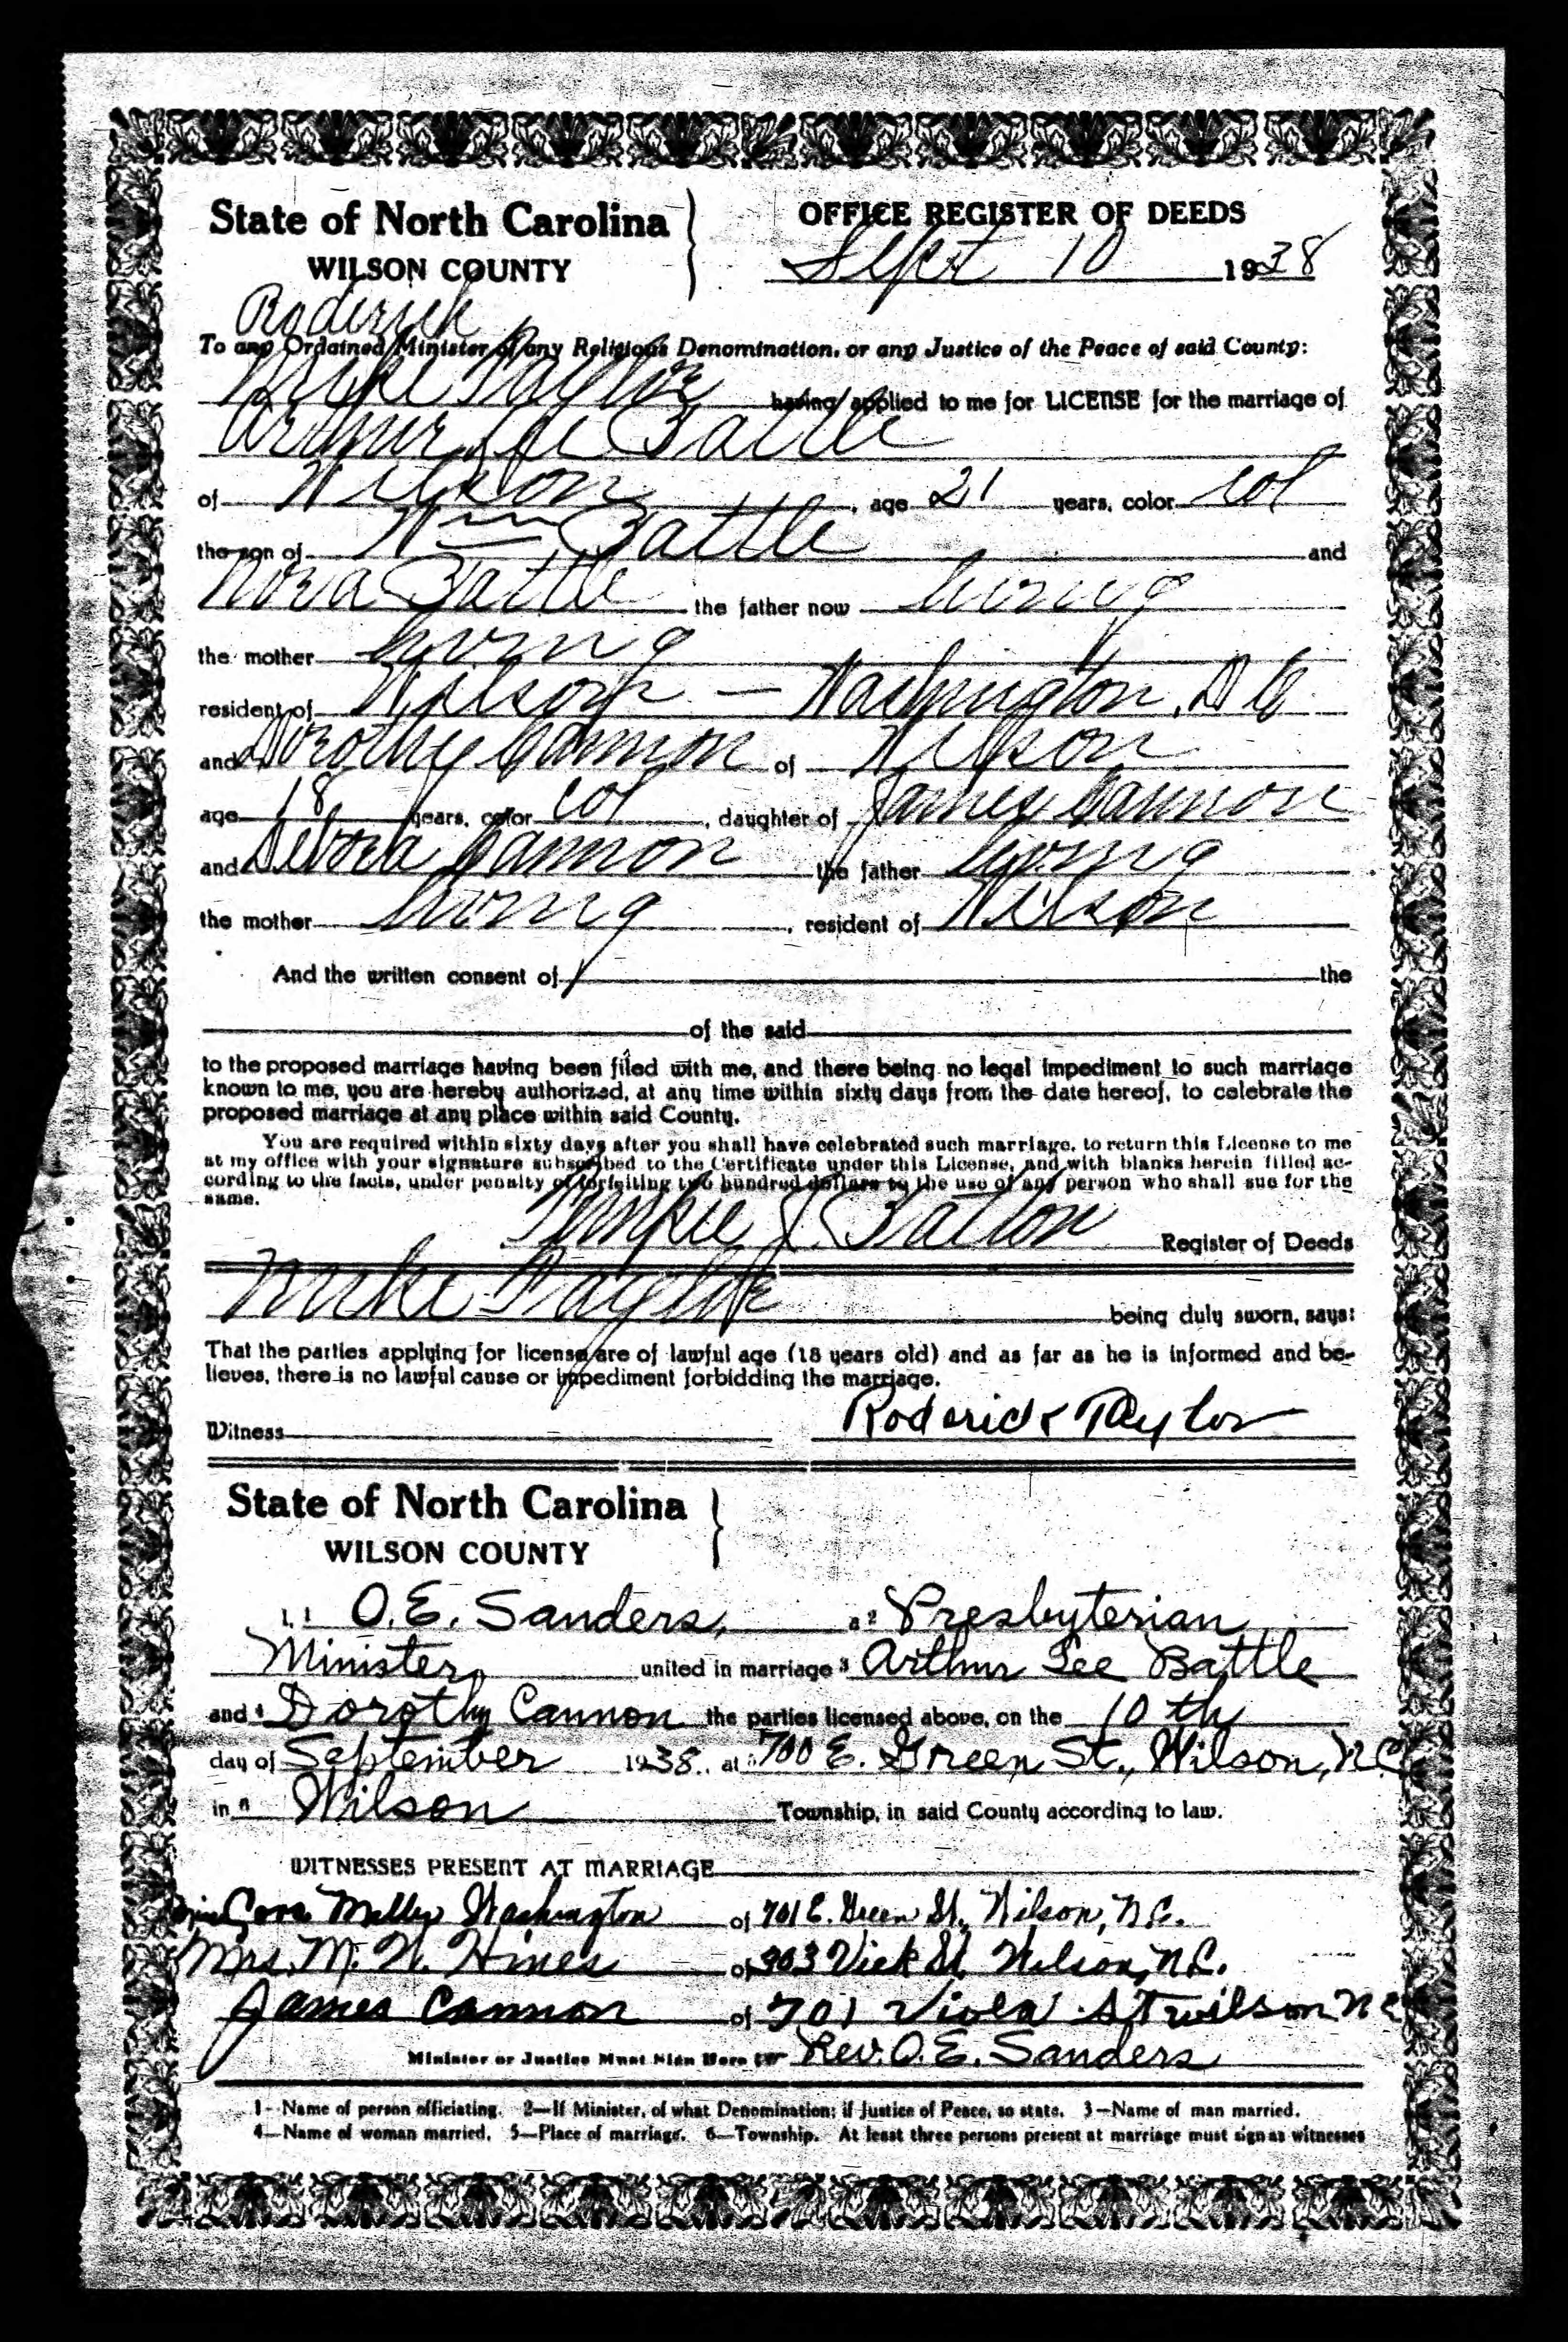 State of North Carolina
WILSON COUNTY
OFFICE REGISTER OF DEEDS
Sept 10 1938
Roderick
To any Ordained Minister of any Religious Denomination, or any Justice of the Peace of said County:
Mike Taylor having applied to me for LICENSE for the marriage of
Arthur Lee Battle
of Wilson, age 21 years, color col
the son of Wm Battle and
Nora Battle the father now living
the mother living
resident of Wilson — Washington, D C
and Dorothy Cannon of Wilson
age 18 years, color col, daughter of James Cannon
and Debora Cannon the father living
the mother living, resident of Wilson
And the written consent of the
of the said
to the proposed marriage having been filed with me, and there being no legal impediment to such marriage
known to me, you are hereby authorized, at any time within sixty days from the date hereof, to celebrate the
proposed marriage at any place within said County.
You are required within sixty days after you shall have celebrated such marriage, to return this License to me
at my office with your signature subscribed to the Certificate under this License, and with blanks herein filled ac-
cording to the facts, under penalty of forfeiting two hundred dollars to the use of any person who shall sue for the
same.
J. Batton Register of Deeds
Mike Taylor being duly sworn, says:
That the parties applying for license are of lawful age (18 years old) and as far as he is informed and be-
lieves, there is no lawful cause or impediment forbidding the marriage.
Witness Roderick Taylor
State of North Carolina
WILSON COUNTY
I, 1 O. E. Sanders, a 2 Presbyterian
Minister, united in marriage 3 Arthur Lee Battle
and 4 Dorothy Cannon the parties licensed above, on the 10 th
day of September 1938, at 5 700 E. Green St., Wilson, N.C.
in 6 Wilson Township, in said County according to law.
WITNESSES PRESENT AT MARRIAGE
Cora Miller Washington of 701 E. Green St., Wilson, N.C.
Mrs. M. W. Hines of 303 Vick St. Wilson, N.C.
James Cannon of 701 Viola St wilson N C
Minister or Justice Must Sign Here Rev. O. E. Sanders
1—Name of person officiating. 2—If Minister, of what Denomination; if Justice of Peace, so state. 3—Name of man married.
4—Name of woman married. 5—Place of marriage. 6—Township. At least three persons present at marriage must sign as witnesses